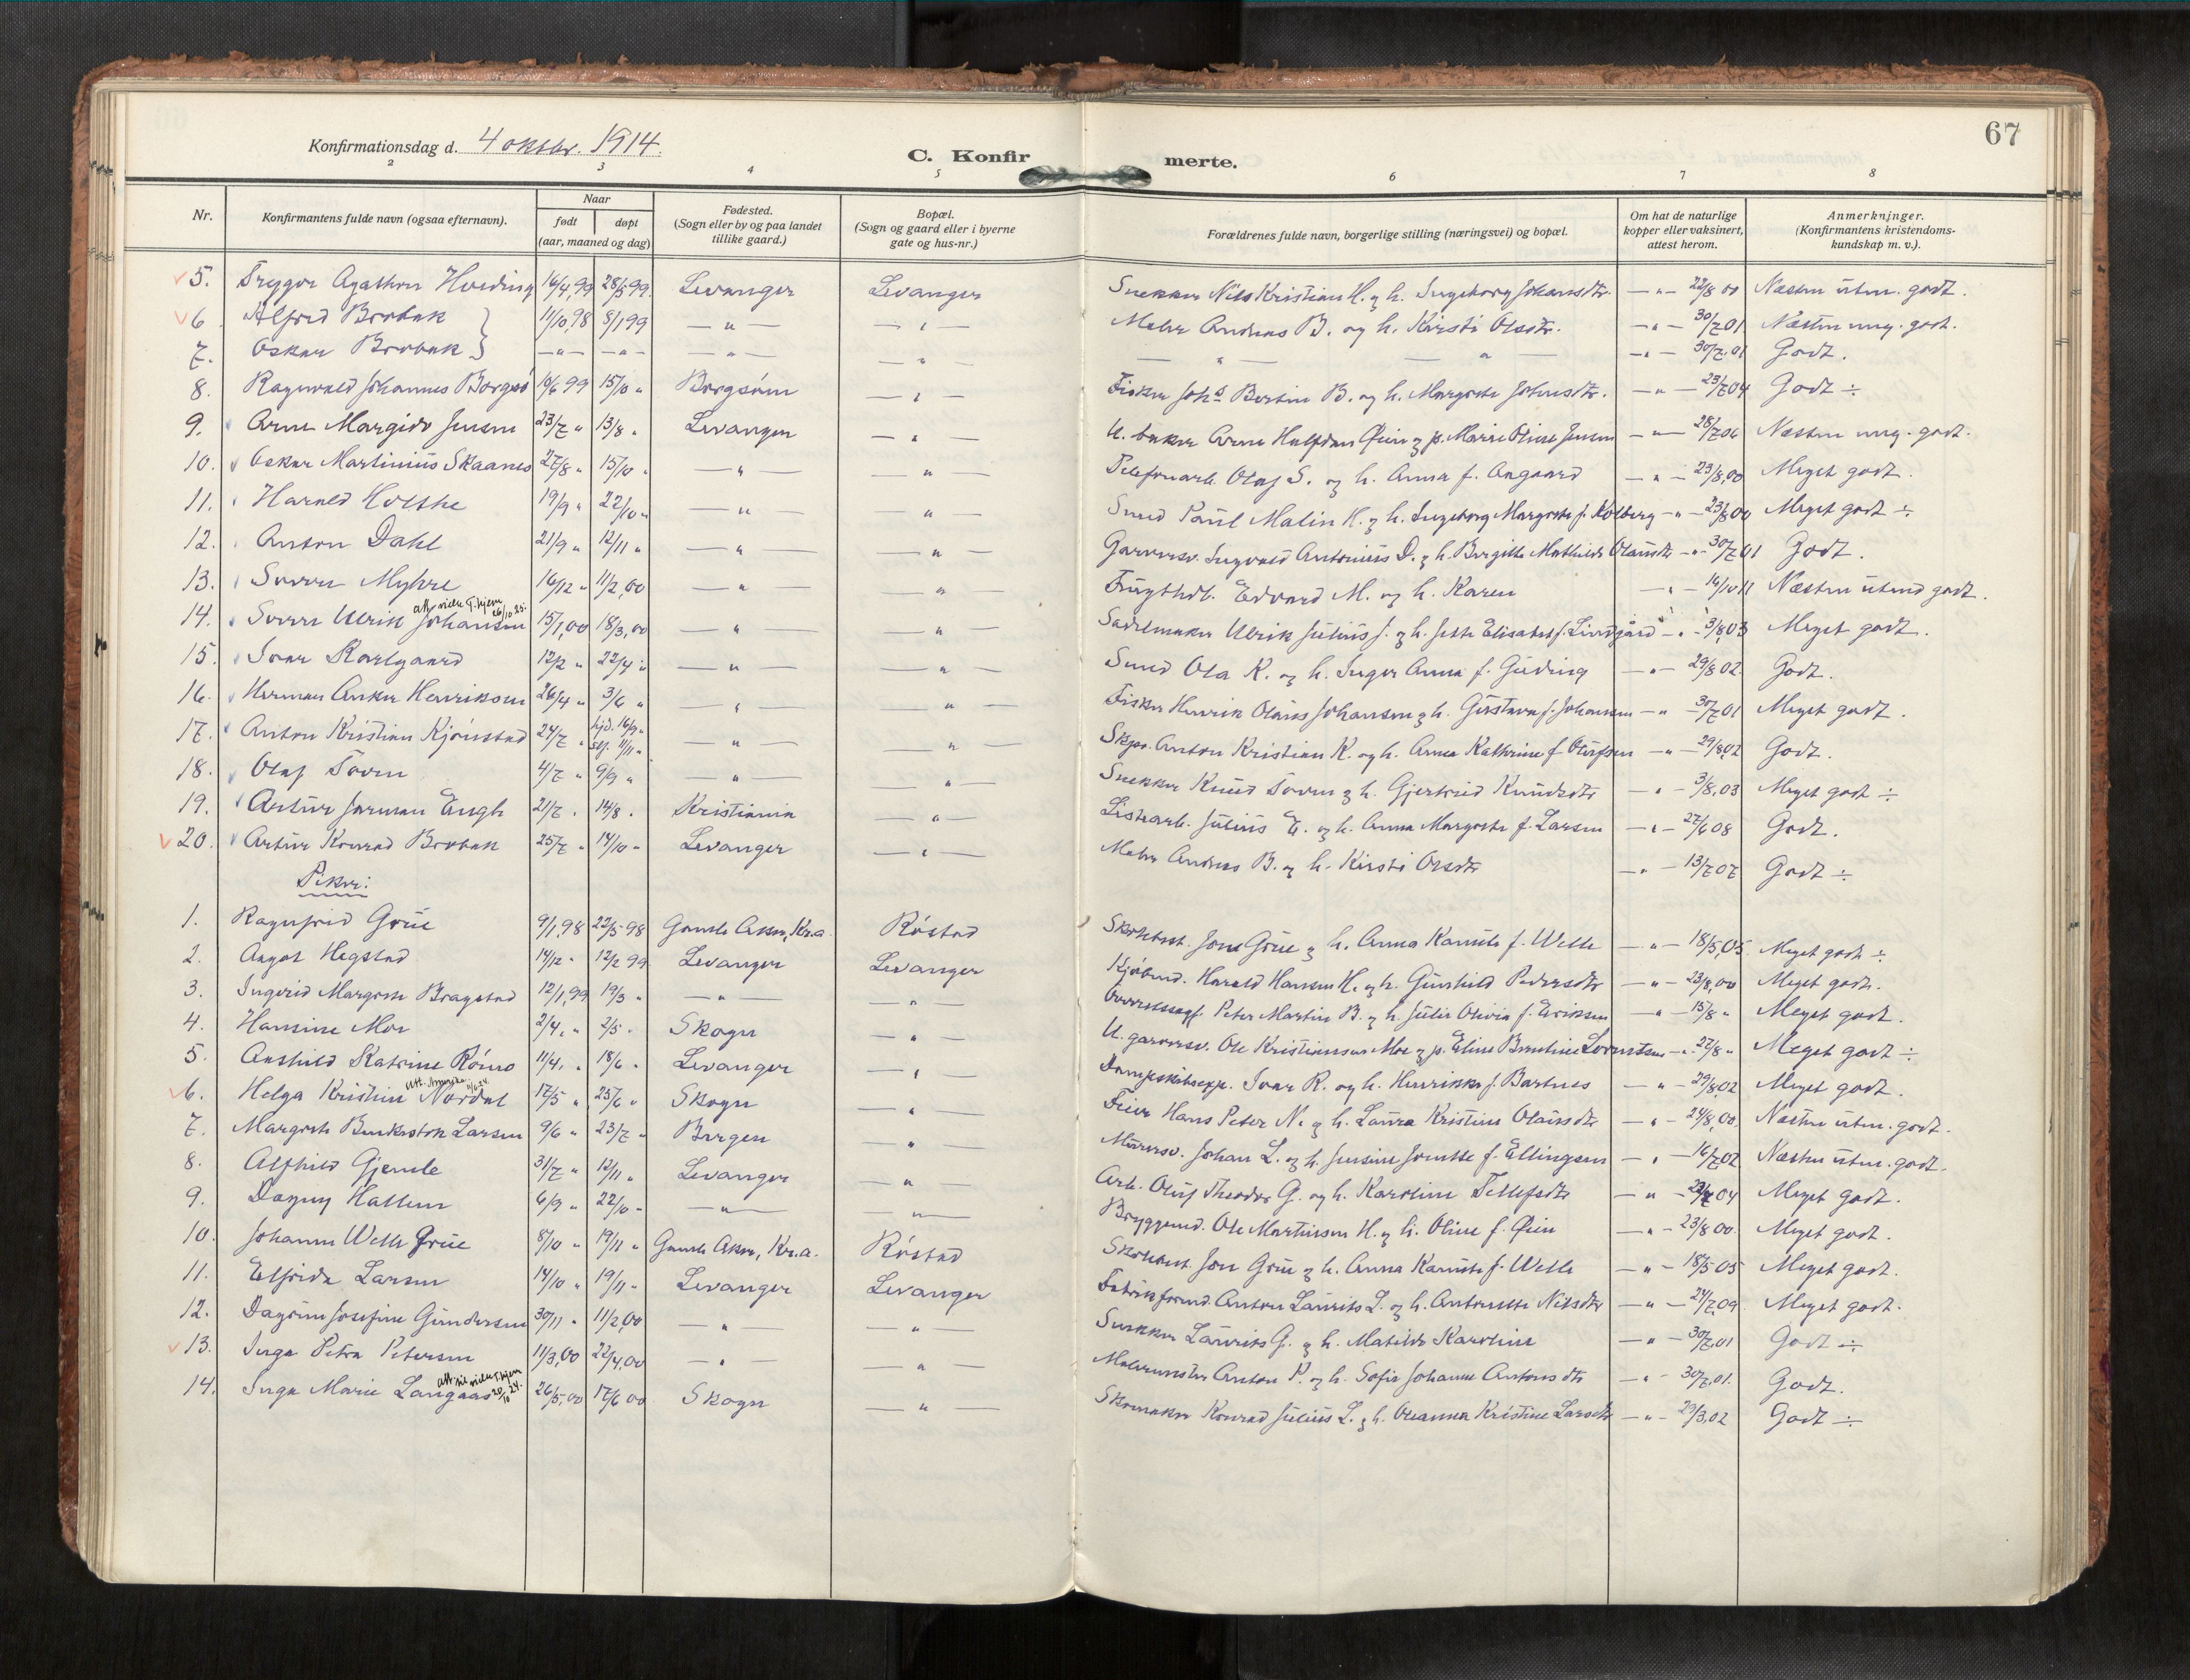 67
Konfirmationsdag d. 4 oktbr. 1914.
C. Konfirmerte.
2 3 4 5 6 7 8
Nr.
Konfirmantens fulde navn (ogsaa efternavn).
Naar
født døpt
(aar, maaned og dag)
Fødested.
(Sogn eller by og paa landet
tillike gaard.)
Bopæl.
(Sogn og gaard eller i byerne
gate og hus-nr.)
Forældrenes fulde navn, borgerlige stilling (næringsvei) og bopæl.
Om hat de naturlige
kopper eller vaksinert,
attest herom.
Anmerkninger.
(Konfirmantens kristendoms-
kundskap m. v.).
5. Trygve Agathon Hveding 16/4,99 28/5 99. Levanger Levanger Snekker Nils Kristian H. og h. Ingeborg Johansdtr. — " — 22/8 00 Næsten utm. godt.
6 Alfred Brobak 11/10,98 8/1 99 — " — — " — Maler Andreas B. og h. Kirsti Olsdtr. — " — 30/7 01 Næsten meg. godt.
7. Oskar Brobak — " — — " — — " — — " — — " — — " — — " — 30/7.01 Godt.
8. Ragnvald Johannes Borgsø 10/6 99 15/10 " Borgsøen — " — Fisker Johs Bertin B. og h. Margrete Johnsdtr. — " — 23/7 04 Godt ÷
9. Arne Margido Jensen 23/7 " 13/8 " Levanger — " — U. baker Arne Halfdan Øien og p. Marie Oline Jensen — " — 28/7 06 Næsten meg. godt.
10. Oskar Martinius Skaanes 27/8 " 15/10 " — " — — " — Telefonarb. Olaf S. og h. Anna f. Aagaard — " — 23/8,00 Meget godt.
11. Harald Holthe 19/9 " 22/10 " — " — — " — Smed Paul Malin H. og h. Ingeborg Margrete f. Kolberg — " — 23/8 00 Meget godt ÷
12. Anton Dahl 21/9 " 12/11 " — " — — " — Garversv. Ingvald Antonius D. og h. Birgitte Mathilde Olausdtr — " — 30/7 01 Godt.
13. Sverre Myhre 16/12 " 11/2,00 — " — — " — Frugthdl. Edvard M. og h. Karen — " — 14/10 11 Næsten utmd godt.
att. vielse T.hjem 26/10 25.
14. Sverre Ulrik Johansen 15/1,00 18/3,00 — " — — " — Sadelmaker Ulrik Julius J. og h. Jette Elisabet f. Lindgård — " — 3/8,03 Meget godt.
15. Ivar Karlgaard 12/2 " 22/4 " — " — — " — Smed Ola K. og h. Inger Anna f. Guding — " — 29/8 02. Godt.
16. Herman Anker Henriksen 26/4 " 3/6 " — " — — " — Fisker Henrik Olaus Johansen og h. Gustava f. Johansen — " 30/7 01 Meget godt.
17. Anton Kristian Kjønstad 24/7 " hjd. 16/9 " stf. 11/11 " — " — — " — Skpr. Anton Kristian K. og h. Anna Kathrine f. Olufsen — " — 29/8,02 Godt.
18. Olaf Toven 4/7 " 9/9 " — " — — " — Snekker Knud Toven og h. Gjertrud Knudsdtr — " — 3/8.03 Meget godt ÷
19. Artur Jarman Engh 21/7 " 14/8 " Kristiania — " — Listearb. Julius E. og h. Anna Margrete f. Larsen — " — 27/6 08 Godt.
20. Artur Konrad Brobak 25/7 " 14/10 " Levanger — " — Maler Andreas B. og h. Kirsti Olsdtr — " — 13/7 07 Godt ÷
Piker:
1. Ragnfrid Grue 9/1,98 22/5 98 Gamle Aker, Kr.a. Røstad Skolebest. Jon Grue og h. Anna Kamilla f. Welle — " — 18/5,05 Meget godt ÷
2. Aagot Hegstad 14/12 " 12/2 99 Levanger Levanger Kjøbmd. Harald Hansen H. og h. Gunhild Pedersdtr — " — 23/8,00 Meget godt.
3. Ingerid Margrete Bragstad 12/1,99 19/3 " — " — — " — Overretssagf. Peter Martin B. og h. Julie Olivia f. Eriksen — " — 15/8 " Meget godt.
4. Hansine Moe 2/4, " 2/5 " Skogn — " — U. garversv. Ole Kristiansen Moe og p. Eline Berntine Lorentsen — " 27/8 " Meget godt ÷
5. Aashild Katrine Rømo 11/4, " 18/6 " Levanger — " — Dampskibsexp. Ivar R. og h. Henrikke f. Bartnes — " — 29/8,02 Meget godt.
6. Helga Kristine Nordal 17/5 " 25/6 " Skogn — " — Feier Hans Peter N. og h. Laura Kristine Olausdtr — " — 24/8,00. Næsten utm. godt.
7. Margrete Larsen 9/6 " 23/7 " Bergen — " — Murersv. Johan L. og h. Jensine Jonette f. Ellingsen — " — 16/7 02 Næsten utm. godt.
8. Alfhild Gjemle 31/7 " 12/11 " Levanger — " — Arb. Oluf Theodor G. og h. Karoline Tellefsdtr — " — 04 Meget godt.
9. Dagny Hallem 6/9 " 22/10 " — " — — " — Bryggemd. Ole Martinsen H. og h. Oline f. Øien — " — 23/8 00 Meget godt.
10. Johanne Welle Grue 8/10 " 19/11 " Gamle Aker, Kr.a. Røstad Skolebest. Jon Grue og h. Anna Kamilla f. Welle — " — 18/5 05 Meget godt.
11. Elfrida Larsen 14/10 " 19/11 " Levanger Levanger Fabrikformd. Anton Laurits L. og h. Antonette Nilsdtr — " — 24/7,09 Meget godt.
12. Dagrun Josefine Gundersen 30/11 " 11/2,00 — " — — " — Snekker Laurits G. og h. Matilde Karoline — " — 30/7,01 Godt ÷
13. Inga Petra Petersen 11/3,00 22/4,00 — " — — " — Malermester Anton P. og h. Sofie Johanne Antonsdtr — " — 30/7,01. Godt.
14. Inga Marie Langaas 26/5,00 17/6 00 Skogn — " — Skomaker Konrad Julius L. og h. Oleanna Kristine Larsdtr — " — 29/3,02 Godt ÷